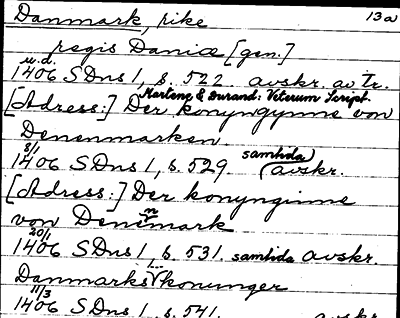 Danmark, rike 13a
regis Daniæ [gen.]
u.d.
1406 SDns 1, s. 522 avskr. av tr.
Martene & Durand: Veterum Script.
[Adress:] Der konyngynne von
Denenmarken.
8/1
1406 SDns 1, s. 529. samtida avskr.
[Adress:] Der konynginne
von Denemark
20/1
1406 SDns 1, s. 531. samtida avskr.
Danmarks konunger
11/3
1406 SDns 1, s. 541. avskr.